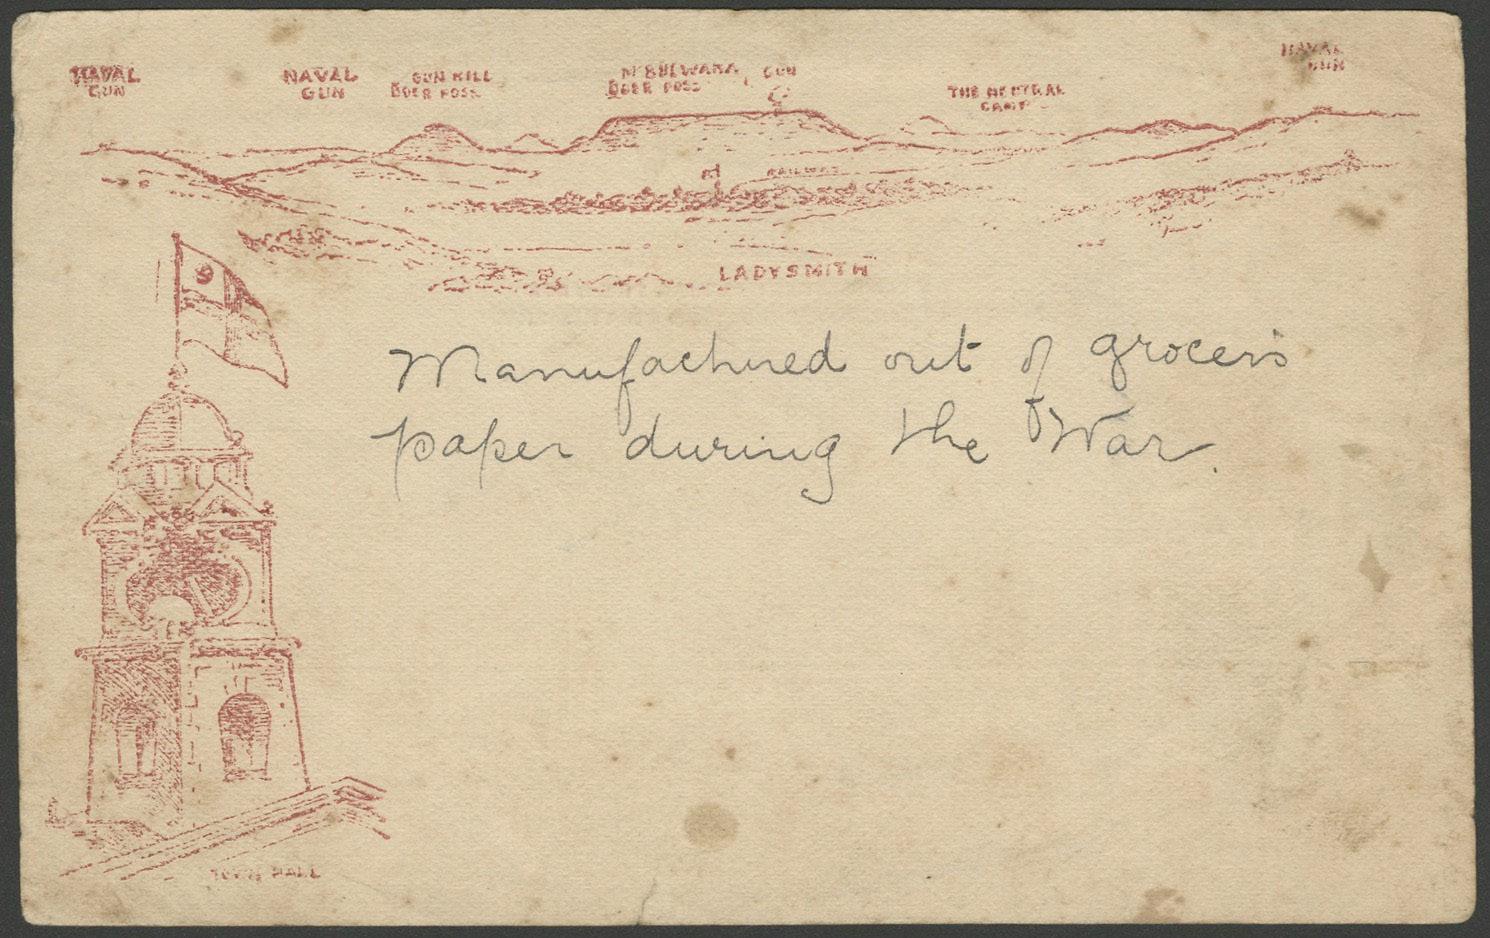 NAVAL
GUN
NAVAL
GUN
GUN HILL
BOER POSS.
Mt BULWANA
BOER POSS
GUN
THE NEUTRAL
CAMP
NAVAL
GUN
RAILWAY
LADYSMITH
Manufactured out of grocer's
paper during the War.
TOWN HALL